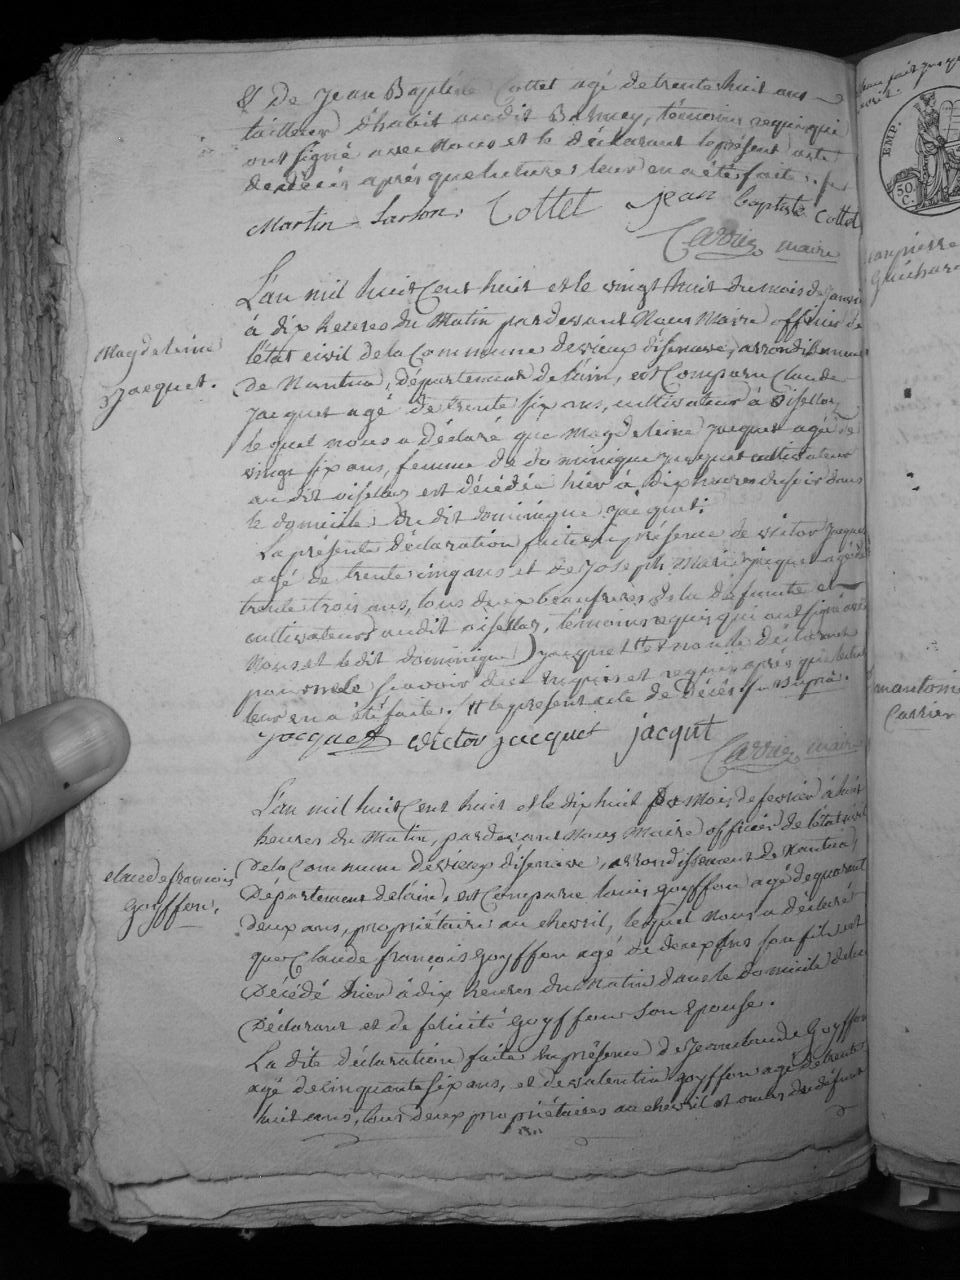 & De Jean Baptiste Cottet agé de trente huit ans
tailleur d'habit audit témoins requis qui
ont signé avec Nous et le déclarant le présent acte
de décès après que lecture leur en a été faite.
Martin Cottet jean baptiste Cottet
Carrier maire
L'an mil huit Cent huit et le vingt huit du mois de Janvier
à dix heures du Matin pardevant Nous Maire officier de
l'état civil de la Commune de vieux disenave, arrondissement
Magdeleine
Jacquet.
De Nantua, département de lain, est Comparu Claude
jacquet agé de trente six ans, cultivateur à oisellaz
lequel nous a déclaré que Magdeleine jacquet agée de
vingt six ans, femme de dominique jacquet cultivateur
au dit oisellaz est décédée hier à dix heures du soir dans
le domicile du dit dominique jacquet.
La présente déclaration faite en présence de victor jacquet
agé de trente cinq ans et de Joseph Marie jacquet agé de
trente trois ans, tous deux beaufrères de la défunte et
cultivateurs audit oisellaz, témoins requis qui ont signé avec
Nous et le dit dominique jacquet et non le déclarant
pour ne le savoir de ce enquis et requis après que lecture
leur en a été faite. # le présent acte de décès
jacquet victor jacquet jacqut
Carrier maire
L'an mil huit Cent huit et le dix huit du Mois de fevrier à huit
heures du Matin, pardevant Nous Maire officier de l'état civil
De la Commune de vieux disenave, arrondissement de Nantua,
claude françois
Goyffon.
Département de lain, est Comparu louis goyffon agé de quarante
deux ans, propriétaire au chevril, lequel Nous a déclaré
que Claude françois Goyffon agé de deux ans son fils est
Décédé hier à dix heures du Matin dans le domicile de lui
Déclarant et de felicité Goyffon son Epouse.
La dite déclaration faite en présence de Goyffon
agé de cinquante six ans, et de valentin goyffon agé de trente
huit ans, tous deux propriétaires au chevril et oncles du défunt
EMP.
50.
C.
jean pierre
Guichard
Carrier